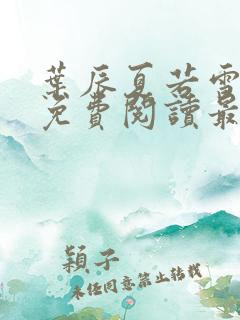 葉辰夏若雪
免費閱讀最
穎子
未經同意禁止轉載